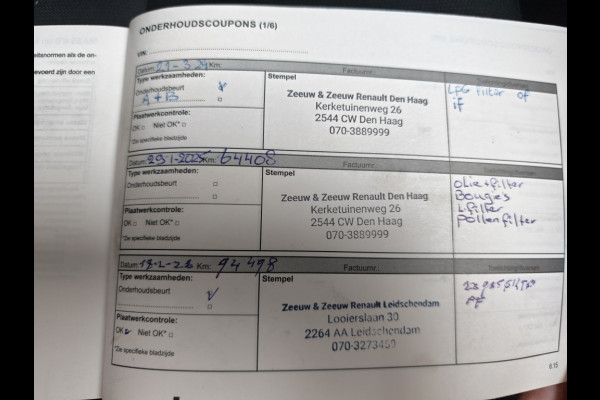 eitsnormen als de on-
evoerd zijn door een
ONDERHOUDSCOUPONS (1/6)
VIN:
Datum: Km: Factuurnr.:
Type werkzaamheden:
Onderhoudsbeurt
A + B
Plaatwerkcontrole:
OK □ Niet OK* □
*Zie specifieke bladzijde
Stempel
Zeeuw & Zeeuw Renault Den Haag
Kerketuinenweg 26
2544 CW Den Haag
070-3889999
LPG filter
Datum: Km: 64408 Factuurnr.:
Type werkzaamheden:
Onderhoudsbeurt
Plaatwerkcontrole:
OK □ Niet OK* □
*Zie specifieke bladzijde
Stempel
Zeeuw & Zeeuw Renault Den Haag
Kerketuinenweg 26
2544 CW Den Haag
070-3889999
olie+filter
Bougies
L filter
pollenfilter
Datum: Km: 94498 Factuurnr.:
Type werkzaamheden:
Onderhoudsbeurt
Plaatwerkcontrole:
OK Niet OK* □
*Zie specifieke bladzijde
Stempel
Zeeuw & Zeeuw Renault Leidschendam
Looierslaan 30
2264 AA Leidschendam
070-3273450
6.15